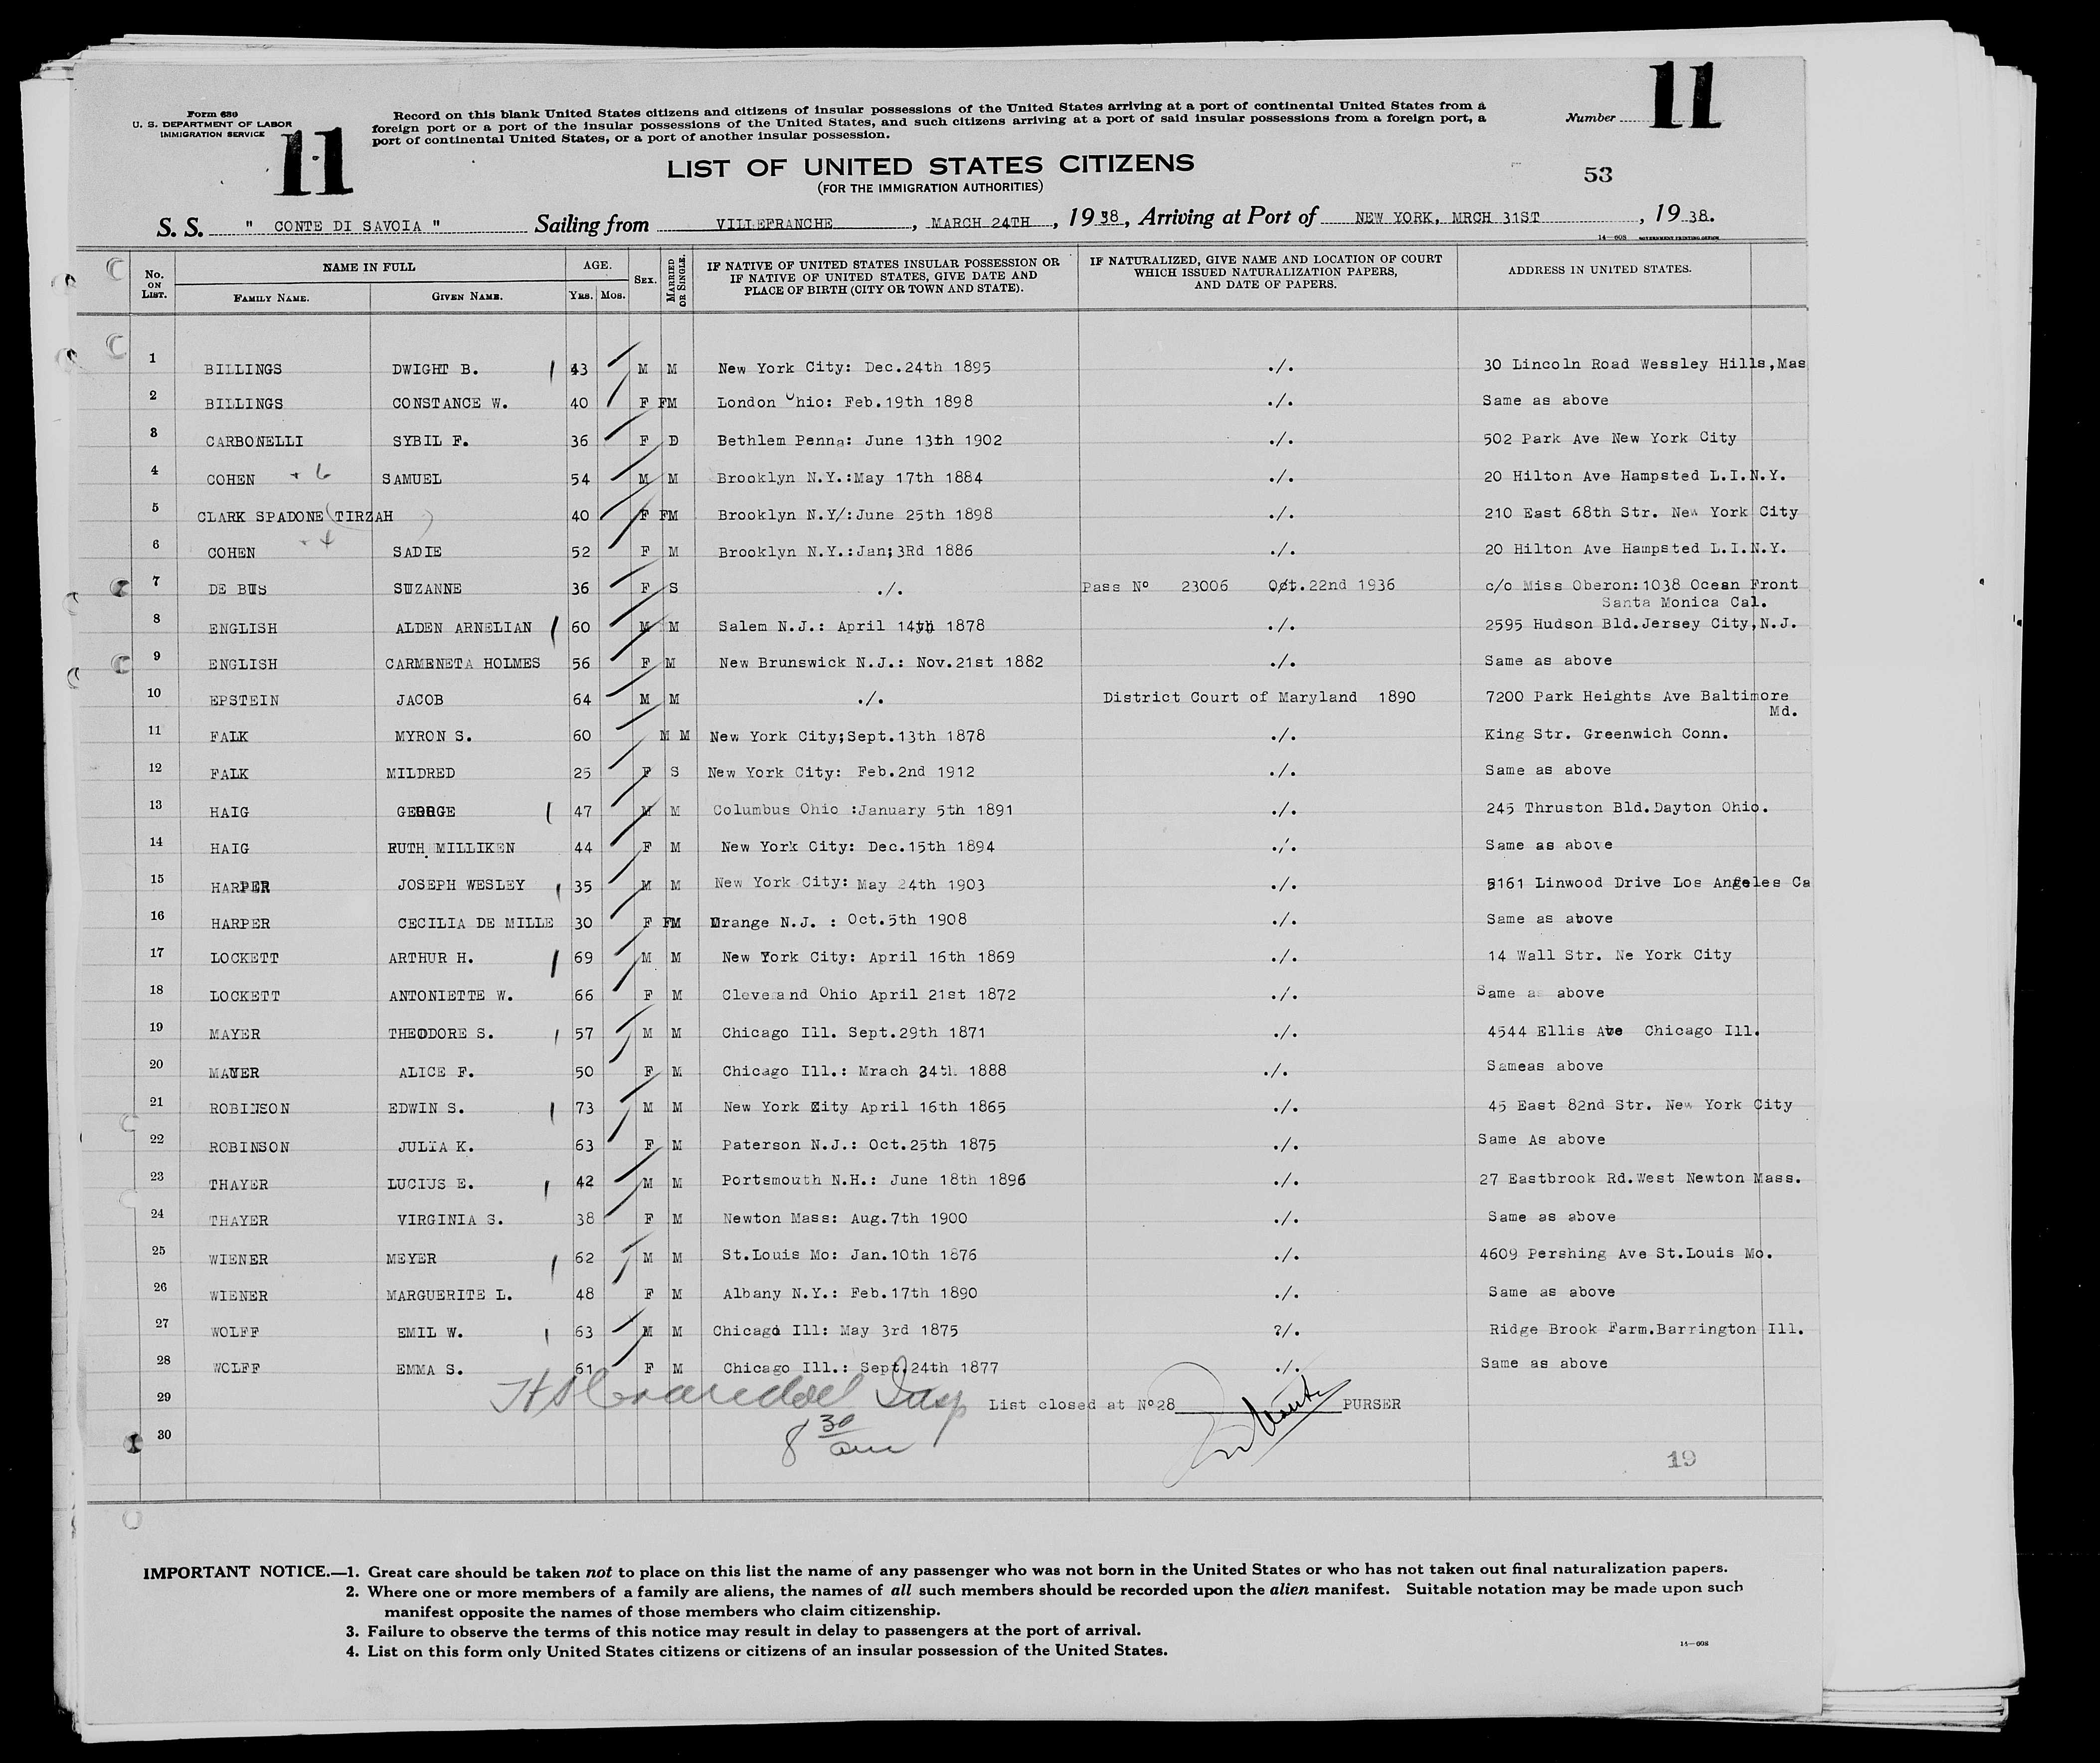 11
Form 630
U. S. DEPARTMENT OF LABOR
IMMIGRATION SERVICE
11
Record on this blank United States citizens and citizens of insular possessions of the United States arriving at a port of continental United States from a
foreign port or a port of the insular possessions of the United States, and such citizens arriving at a port of said insular possessions from a foreign port, a
port of continental United States, or a port of another insular possession.
Number
LIST OF UNITED STATES CITIZENS
(FOR THE IMMIGRATION AUTHORITIES)
53
S. S. " CONTE DI SAVOIA " Sailing from VILLEFRANCHE, MARCH 24TH, 1938, Arriving at Port of NEW YORK, MRCH 31ST, 1938.
14—608 GOVERNMENT PRINTING OFFICE
No. ON LIST. NAME IN FULL AGE. SEX. MARRIED OR SINGLE. IF NATIVE OF UNITED STATES INSULAR POSSESSION OR IF NATIVE OF UNITED STATES, GIVE DATE AND PLACE OF BIRTH (CITY OR TOWN AND STATE). IF NATURALIZED, GIVE NAME AND LOCATION OF COURT WHICH ISSUED NATURALIZATION PAPERS, AND DATE OF PAPERS. ADDRESS IN UNITED STATES.
FAMILY NAME. GIVEN NAME. YRS. MOS.
1 BILLINGS DWIGHT B. 43 M M New York City: Dec.24th 1895 ./. 30 Lincoln Road Wessley Hills,Mas
2 BILLINGS CONSTANCE W. 40 F FM London Ohio: Feb.19th 1898 ./. Same as above
3 CARBONELLI SYBIL F. 36 F D Bethlem Penna: June 13th 1902 ./. 502 Park Ave New York City
4 COHEN + 6 SAMUEL 54 M M Brooklyn N.Y.:May 17th 1884 ./. 20 Hilton Ave Hampsted L.I.N.Y.
5 CLARK SPADONE (TIRZAH ) 40 F FM Brooklyn N.Y/:June 25th 1898 ./. 210 East 68th Str. New York City
6 COHEN + 4 SADIE 52 F M Brooklyn N.Y.:Jan;3Rd 1886 ./. 20 Hilton Ave Hampsted L.I.N.Y.
7 DE BUS SUZANNE 36 F S ./. Pass Nº 23006 Oct.22nd 1936 c/o Miss Oberon:1038 Ocean Front
Santa Monica Cal.
8 ENGLISH ALDEN ARNELIAN 60 M M Salem N.J.: April 14th 1878 ./. 2595 Hudson Bld.Jersey City,N.J.
9 ENGLISH CARMENETA HOLMES 56 F M New Brunswick N.J.: Nov.21st 1882 ./. Same as above
10 EPSTEIN JACOB 64 M M ./. District Court of Maryland 1890 7200 Park Heights Ave Baltimore
Md.
11 FALK MYRON S. 60 M M New York City;Sept.13th 1878 ./. King Str. Greenwich Conn.
12 FALK MILDRED 25 F S New York City: Feb.2nd 1912 ./. Same as above
13 HAIG GEORGE 47 M M Columbus Ohio :January 5th 1891 ./. 245 Thruston Bld.Dayton Ohio.
14 HAIG RUTH MILLIKEN 44 F M New York City: Dec.15th 1894 ./. Same as above
15 HARPER JOSEPH WESLEY 35 M M New York City: May 24th 1903 ./. 5161 Linwood Drive Los Angeles Ca
16 HARPER CECILIA DE MILLE 30 F FM Orange N.J. : Oct.5th 1908 ./. Same as above
17 LOCKETT ARTHUR H. 69 M M New York City: April 16th 1869 ./. 14 Wall Str. Ne York City
18 LOCKETT ANTONIETTE W. 66 F M Cleveland Ohio April 21st 1872 ./. Same as above
19 MAYER THEODORE S. 57 M M Chicago Ill. Sept.29th 1871 ./. 4544 Ellis Ave Chicago Ill.
20 MAYER ALICE F. 50 F M Chicago Ill.: Mrach 24th 1888 ./. Sameas above
21 ROBINSON EDWIN S. 73 M M New York City April 16th 1865 45 East 82nd Str. New York City
22 ROBINSON JULIA K. 63 F M Paterson N.J.: Oct.25th 1875 ./. Same As above
23 THAYER LUCIUS E. 42 M M Portsmouth N.H.: June 18th 1896 ./. 27 Eastbrook Rd.West Newton Mass.
24 THAYER VIRGINIA S. 38 F M Newton Mass: Aug.7th 1900 ./. Same as above
25 WIENER MEYER 62 M M St.Louis Mo: Jan.10th 1876 ./. 4609 Pershing Ave St.Louis Mo.
26 WIENER MARGUERITE L. 48 F M Albany N.Y.: Feb.17th 1890 ./. Same as above
27 WOLFF EMIL W. 63 M M Chicago Ill: May 3rd 1875 ?/. Ridge Brook Farm.Barrington Ill.
28 WOLFF EMMA S. 61 F M Chicago Ill.: Sept.24th 1877 ./. Same as above
29 Insp List closed at Nº28 PURSER
30 8 30 am
19
IMPORTANT NOTICE.—1. Great care should be taken not to place on this list the name of any passenger who was not born in the United States or who has not taken out final naturalization papers.
2. Where one or more members of a family are aliens, the names of all such members should be recorded upon the alien manifest. Suitable notation may be made upon such
manifest opposite the names of those members who claim citizenship.
3. Failure to observe the terms of this notice may result in delay to passengers at the port of arrival.
4. List on this form only United States citizens or citizens of an insular possession of the United States.
14—608